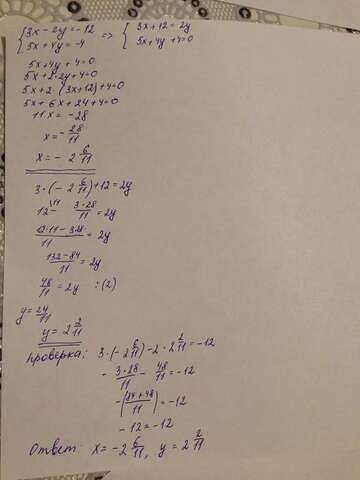 {3x - 2y = -12 => {3x + 12 = 2y
{5x + 4y = -4 {5x + 4y + 4 = 0
5x + 4y + 4 = 0
5x + 2·2y + 4 = 0
5x + 2·(3x + 12) + 4 = 0
5x + 6x + 24 + 4 = 0
11x = -28
x = -28/11
x = -2 6/11
3·(-2 6/11) + 12 = 2y
12\11 - 3·28/11 = 2y
12·11 - 3·28/11 = 2y
132 - 84/11 = 2y
48/11 = 2y :(2)
y = 24/11
y = 2 2/11
проверка: 3·(-2 6/11) - 2·2 2/11 = -12
- 3·28/11 - 48/11 = -12
-(84 + 48/11) = -12
-12 = -12
Ответ: x = -2 6/11, y = 2 2/11